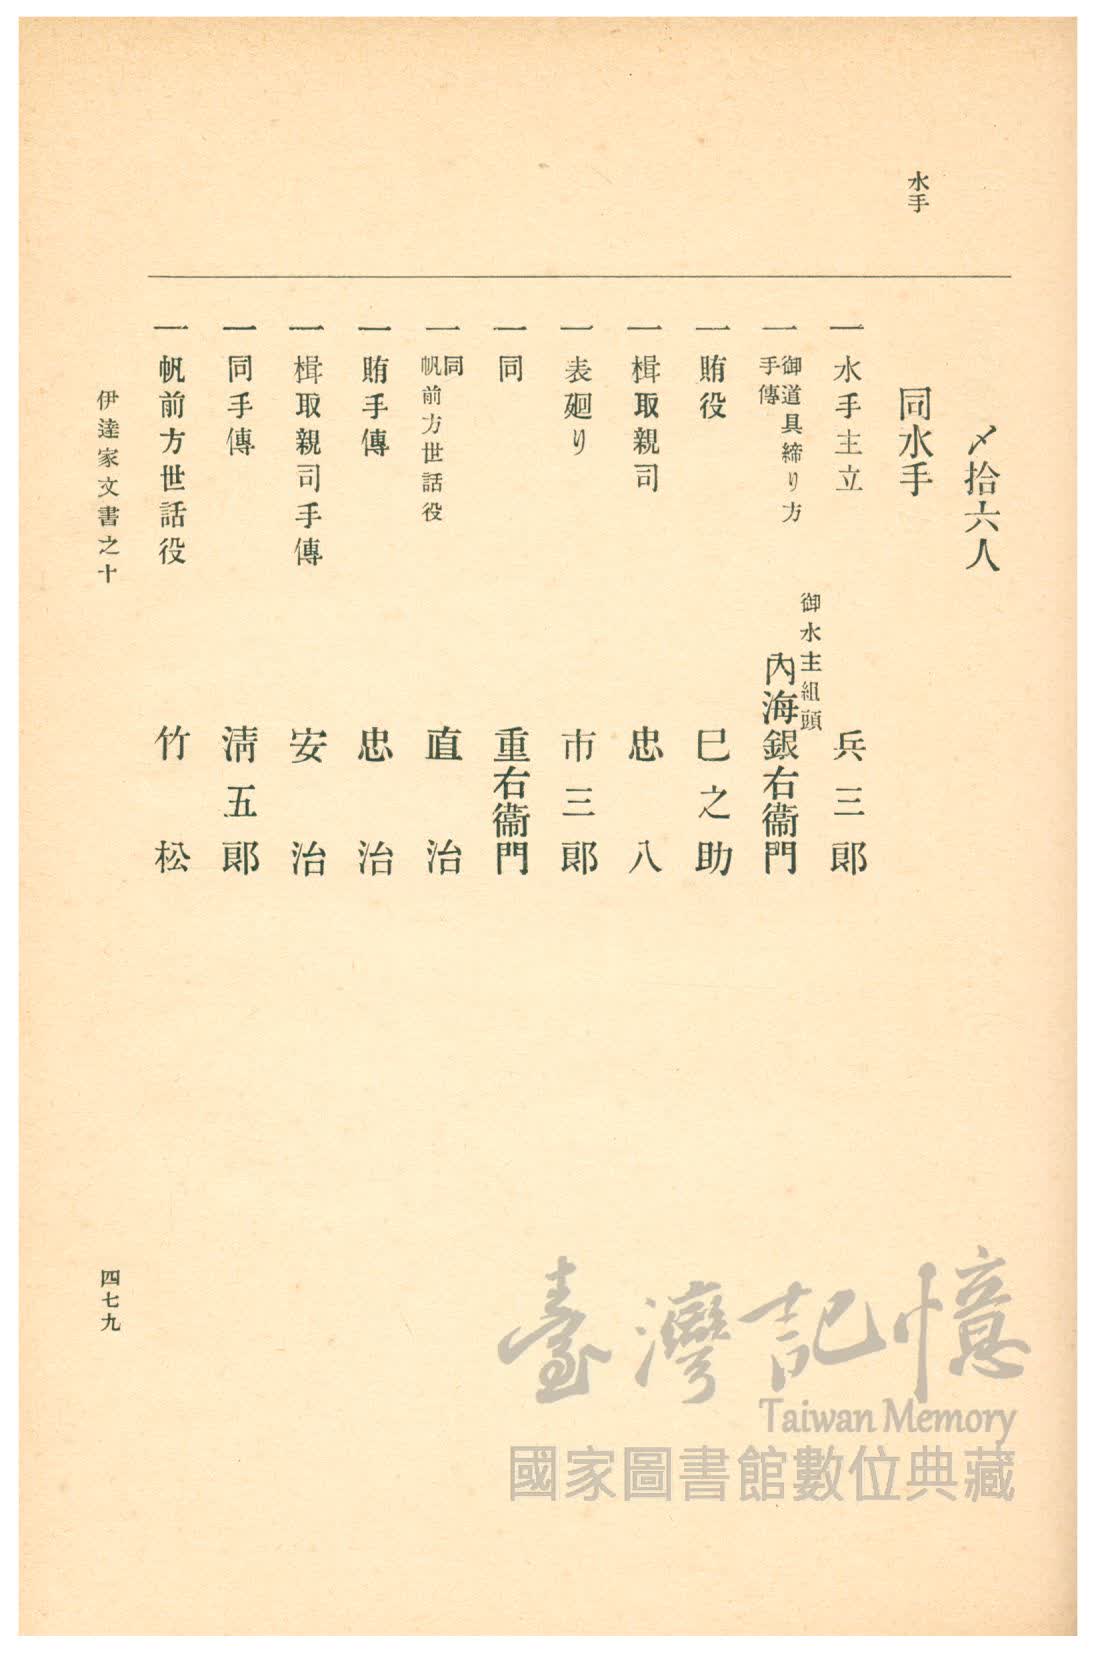 水手
〆拾六人
同水手
一水手主立 兵三郎
一御道具締り方
手傳 御水主組頭
内海銀右衞門
一賄役 巳之助
一楫取親司 忠八
一表廻り 市三郎
一同 重右衞門
一同
帆前方世話役 直治
一賄手傳 忠治
一楫取親司手傳 安治
一同手傳 淸五郎
一帆前方世話役 竹松
伊達家文書之十 四七九
臺灣記憶
Taiwan Memory
國家圖書館數位典藏